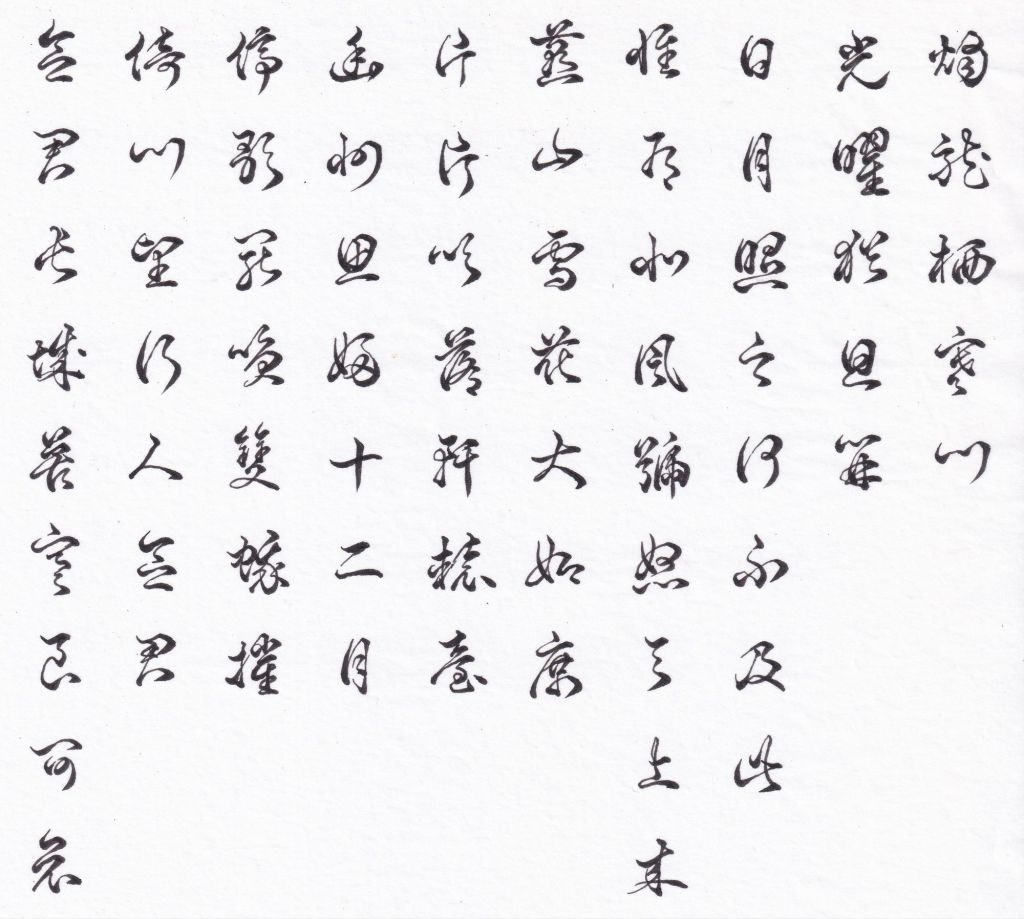 燭龍栖寒門
光曜猶旦開
日月照之何不及此
惟有北風號怒天上來
燕山雪花大如席
片片吹落軒轅臺
幽州思婦十二月
停歌罷笑雙蛾摧
倚門望行人念君
念君長城苦寒良可哀